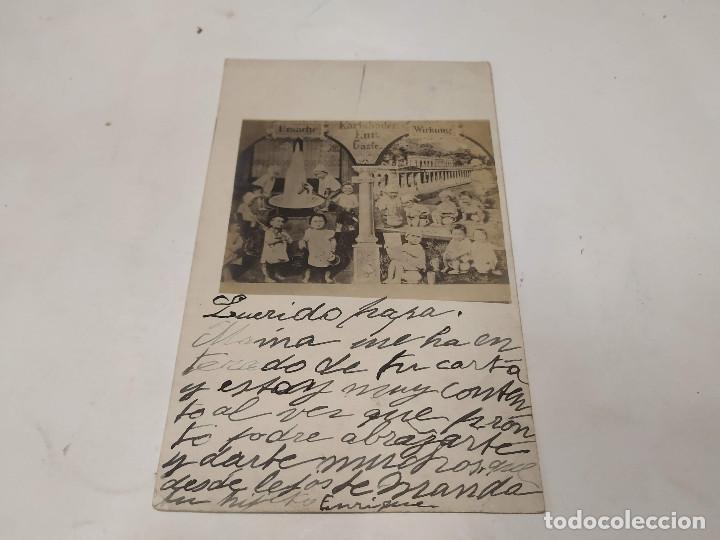 Ursache
Karlsbader
Kur
Gäste
Wirkung
Querido papa.
Mama me ha en
terado de tu carta
y estoy muy conten
to al ver que pron
to podre abrazarte
y darte muchos, que
desde lejos te manda
tu hijito Enrique
todocoleccion.net